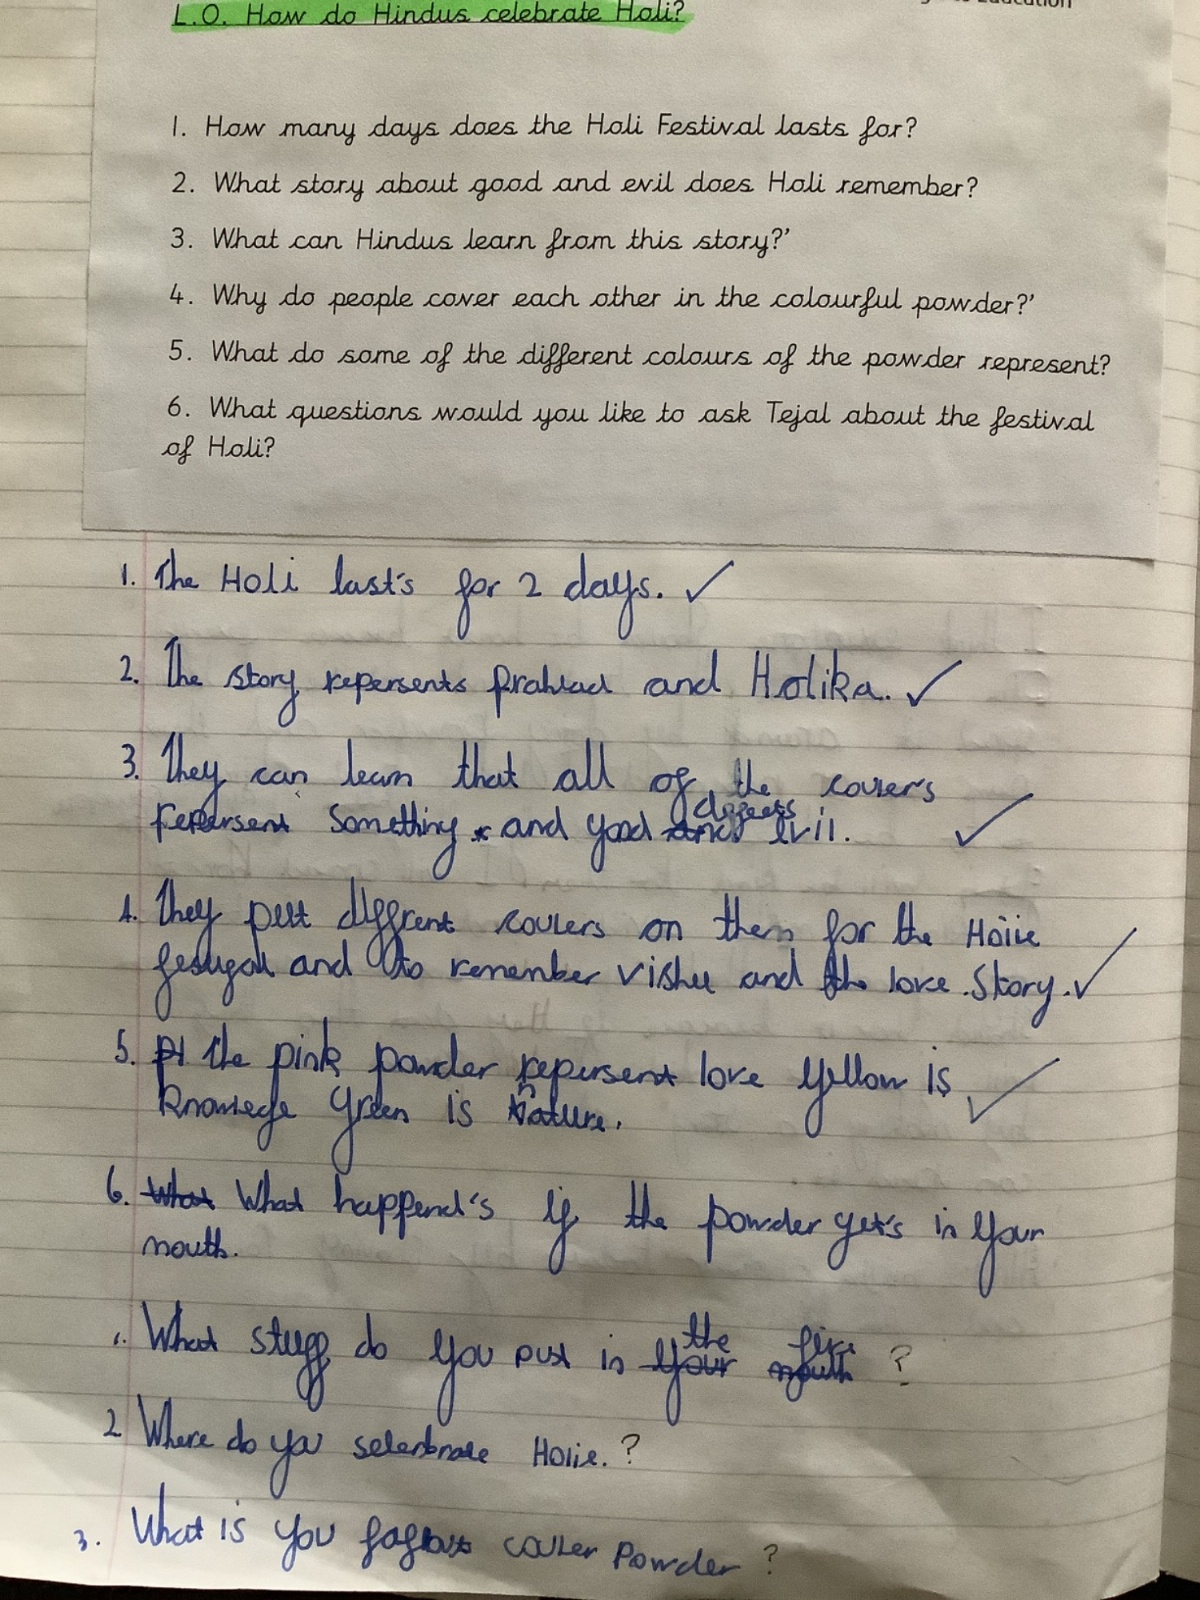 L.O. How do Hindus celebrate Holi?
1. How many days does the Holi Festival lasts for?
2. What story about good and evil does Holi remember?
3. What can Hindus learn from this story?'
4. Why do people cover each other in the colourful powder?'
5. What do some of the different colours of the powder represent?
6. What questions would you like to ask Tejal about the festival
of Holi?
1. The Holi last's for 2 days. ✓
2. The story repersents Prahlad and Holika. ✓
3. They can learn that all of the coulers
repersent Something and good defeets evil. ✓
4. They put diffrent coulers on them for the Holie
and to remember Vishu and the love Story. ✓
5. The pink powder repersent love Yellow is ✓
knowlege Green is nature.
6. What What happend's if the powder get's in Your
mouth.
1. What stuff do You put in your the mouth fire ?
2 Where do you selerbrate Holie. ?
3. What is You couler Powder ?